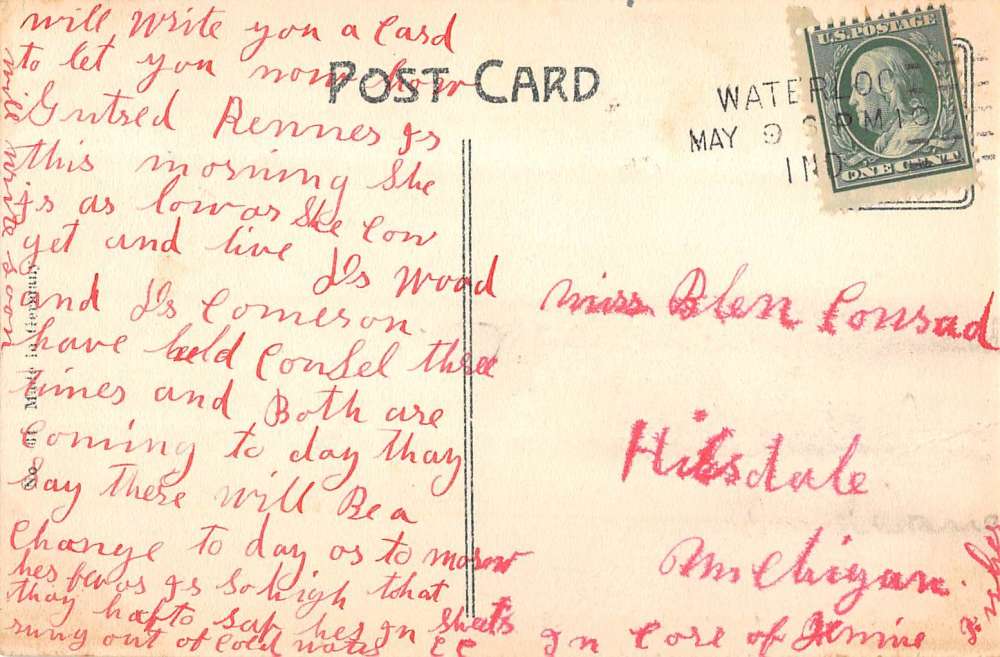 will write you a Card
to let you now how
Gutred Renner Is
this morning She
Is as low as She Con
yet and live Ds Wood
and Ds Comeron
have held Consel three
times and Both are
Coming to day thay
Say there will Be a
Change to day or to morow
her fevor Is So high that
thay hafto rap her In Sheets
rung out of Cold water
will write soon
Made in Germany
POST CARD
U.S. POSTAGE
ONE CENT
WATERLOO
MAY 9 PM
IND
Miss Blen Conrad
Hilsdale
Michigan
In Core of Jennie